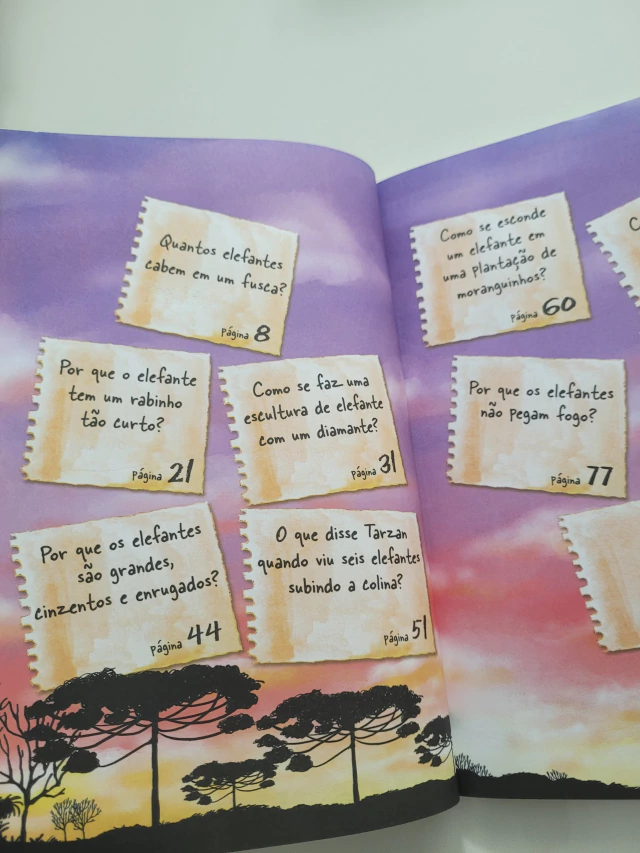 Quantos elefantes
cabem em um fusca?
Página 8
Por que o elefante
tem um rabinho
tão curto?
Página 21
Como se faz uma
escultura de elefante
com um diamante?
Página 31
Por que os elefantes
são grandes,
cinzentos e enrugados?
Página 44
O que disse Tarzan
quando viu seis elefantes
subindo a colina?
Página 51
Como se esconde
um elefante em
uma plantação de
moranguinhos?
Página 60
Por que os elefantes
não pegam fogo?
Página 77